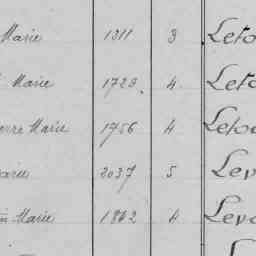 Marie 1311 3 Leto
Marie 1728 4 Leto
erre Marie 1756 4 Letou
arie 2037 5 Lev
in Marie 1862 4 Leva